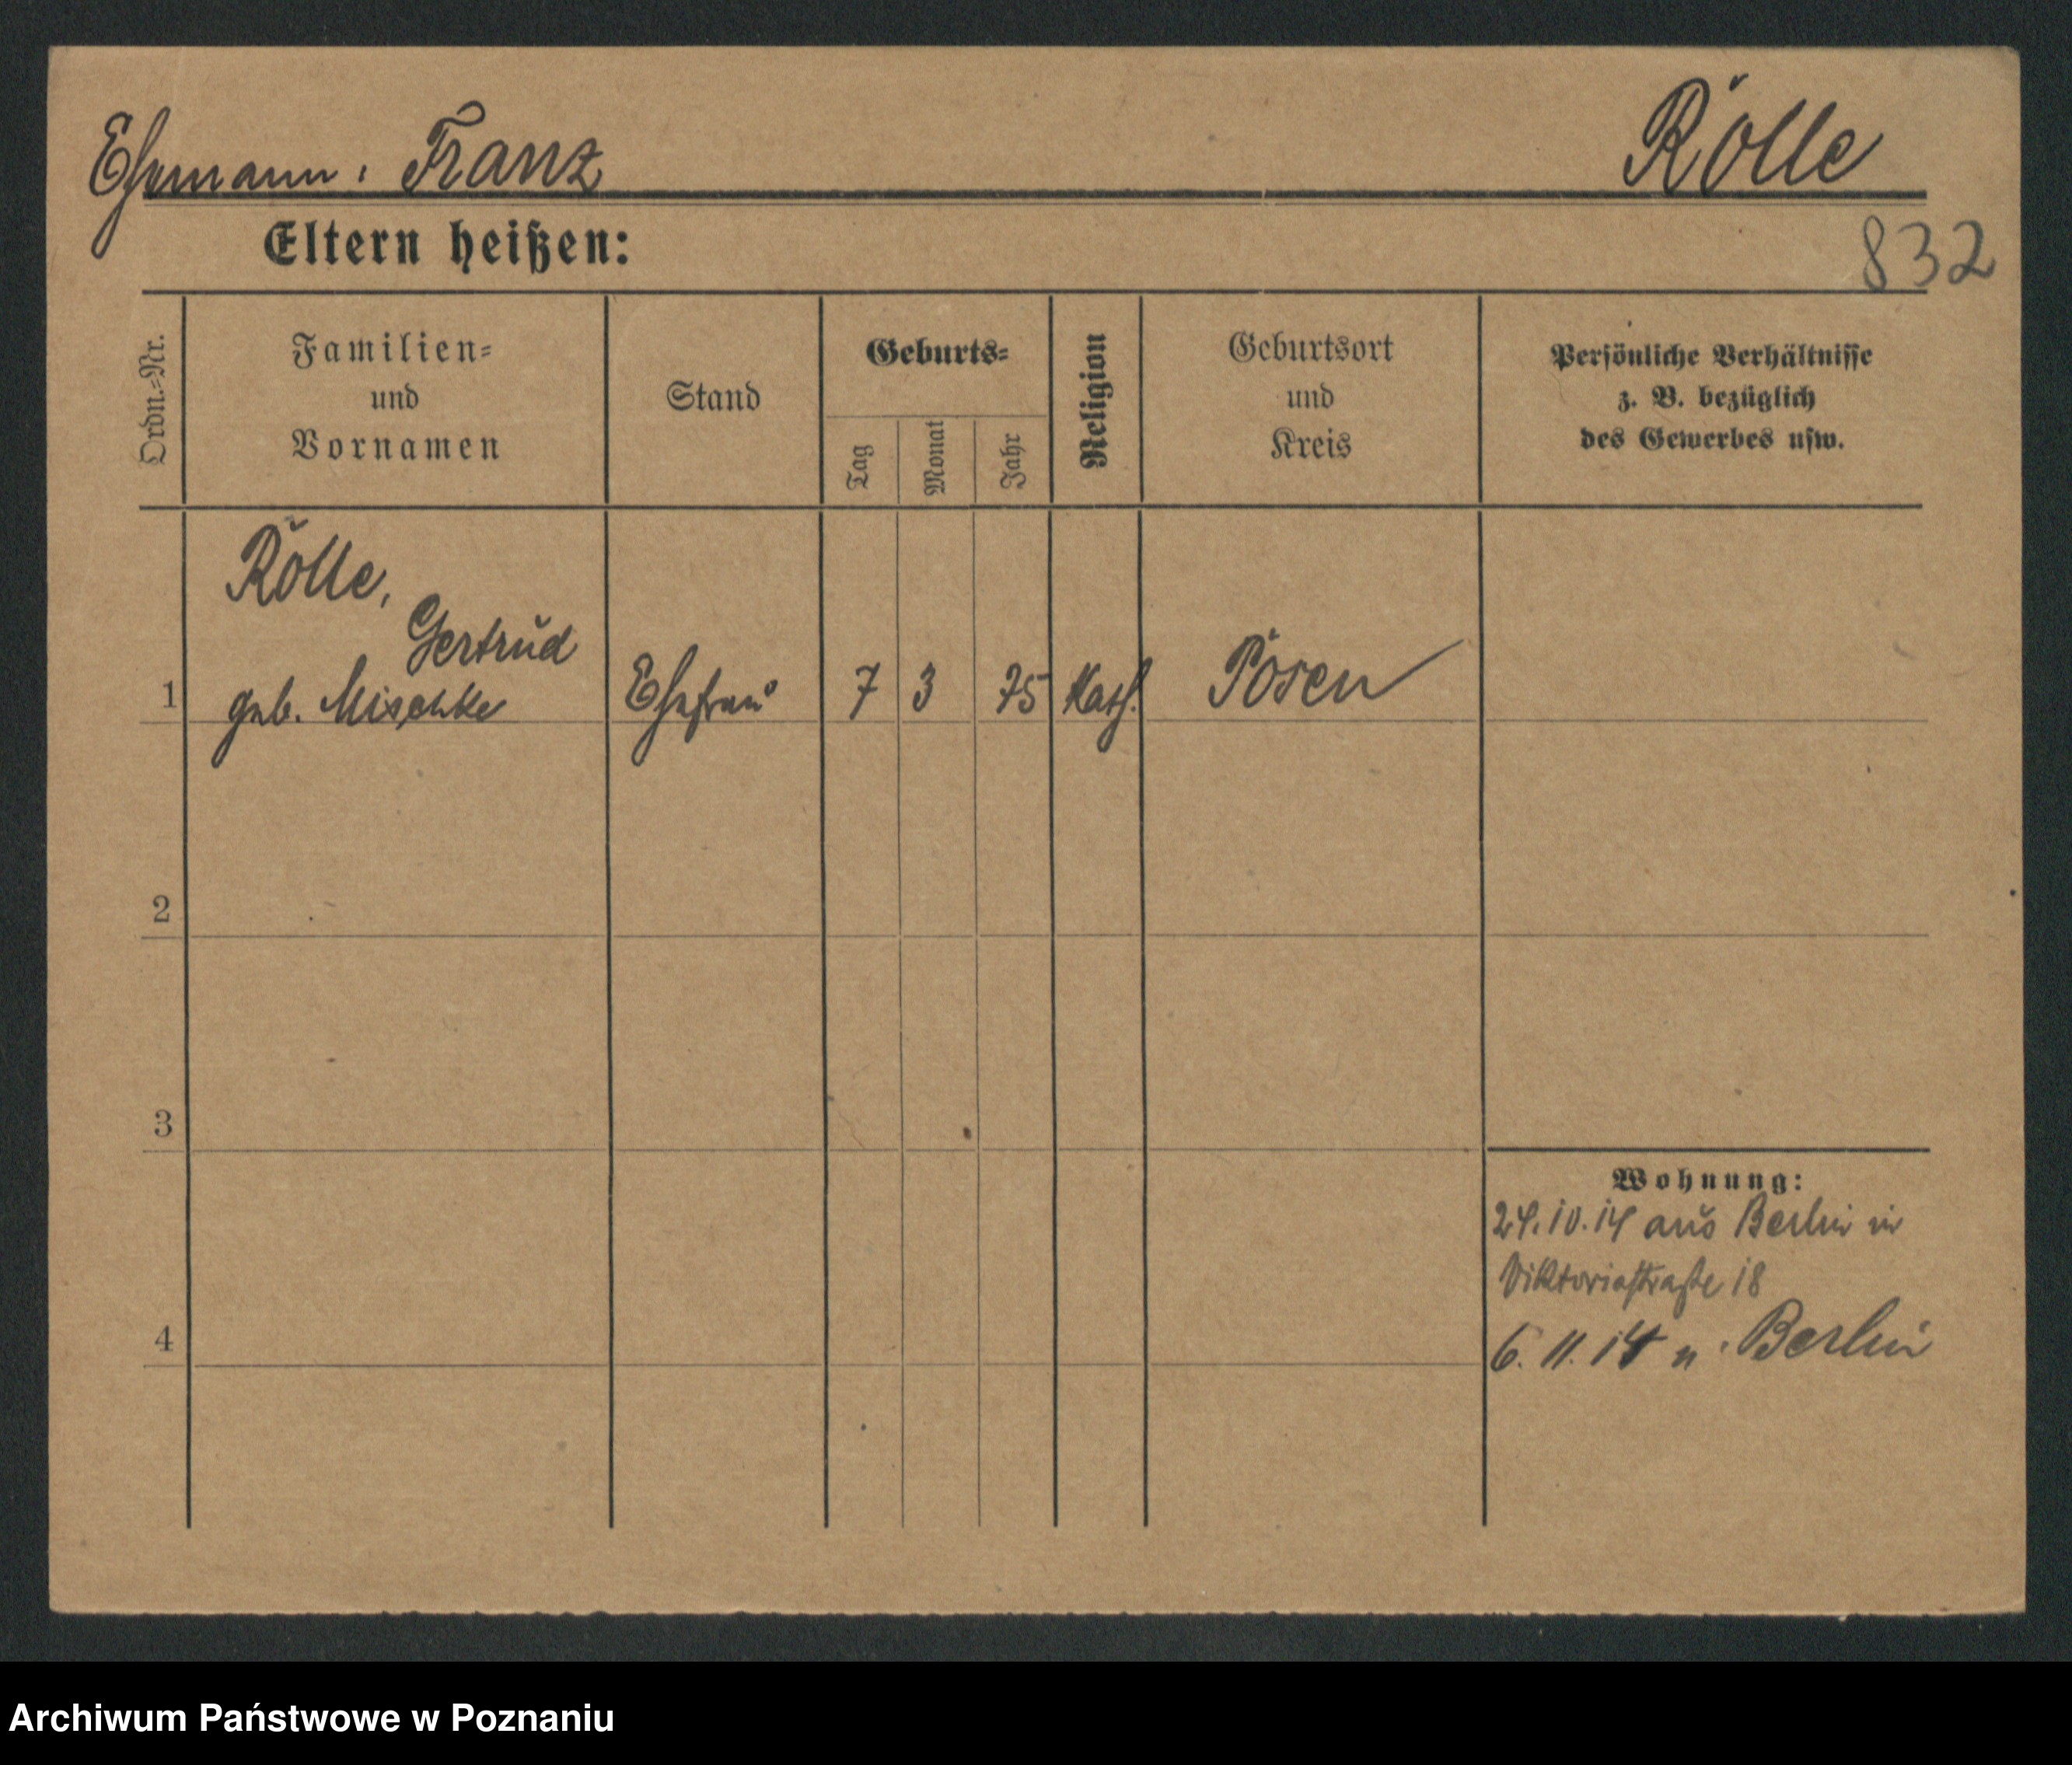 Ehemann: Franz
Rölle
Eltern heißen:
832
Ordn.=Nr.
Familien=
und
Vornamen
Stand
Geburts=
Tag
Monat
Jahr
Religion
Geburtsort
und
Kreis
Persönliche Verhältnisse
z. B. bezüglich
des Gewerbes usw.
Rölle,
Gertrud
1 geb. Mischke Ehefrau 7 3 75 Kath. Posen
2
3
4
Wohnung:
24.10.14 aus Berlin in
Viktoriastraße 18
6. 11. 14 n. Berlin
Archiwum Państwowe w Poznaniu